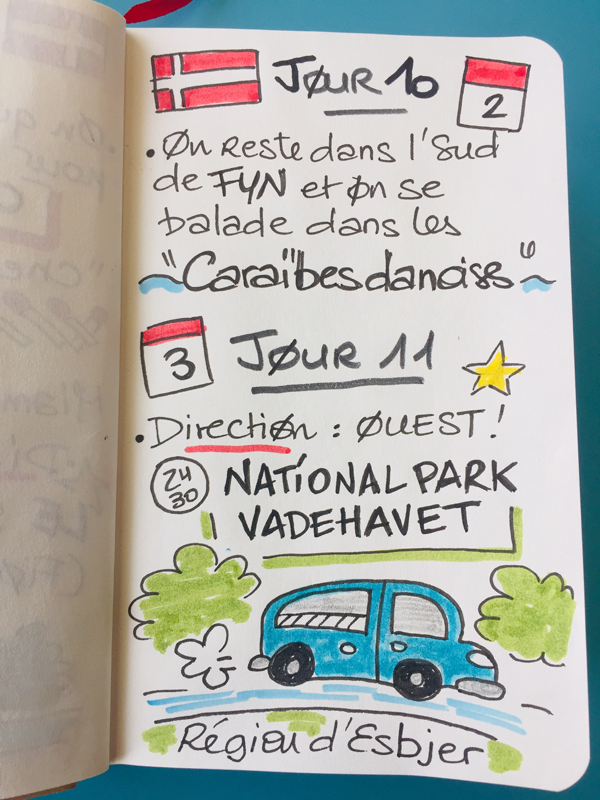 JØUR 10
2
• Øn Reste dans l'Sud
de FYN et øn se
balade dans les
"Caraïbes danoises"
3
JØUR 11
• Directiøn : ØUEST!
24
30
NATIONAL PARK
VADEHAVET
Région d'Esbjer